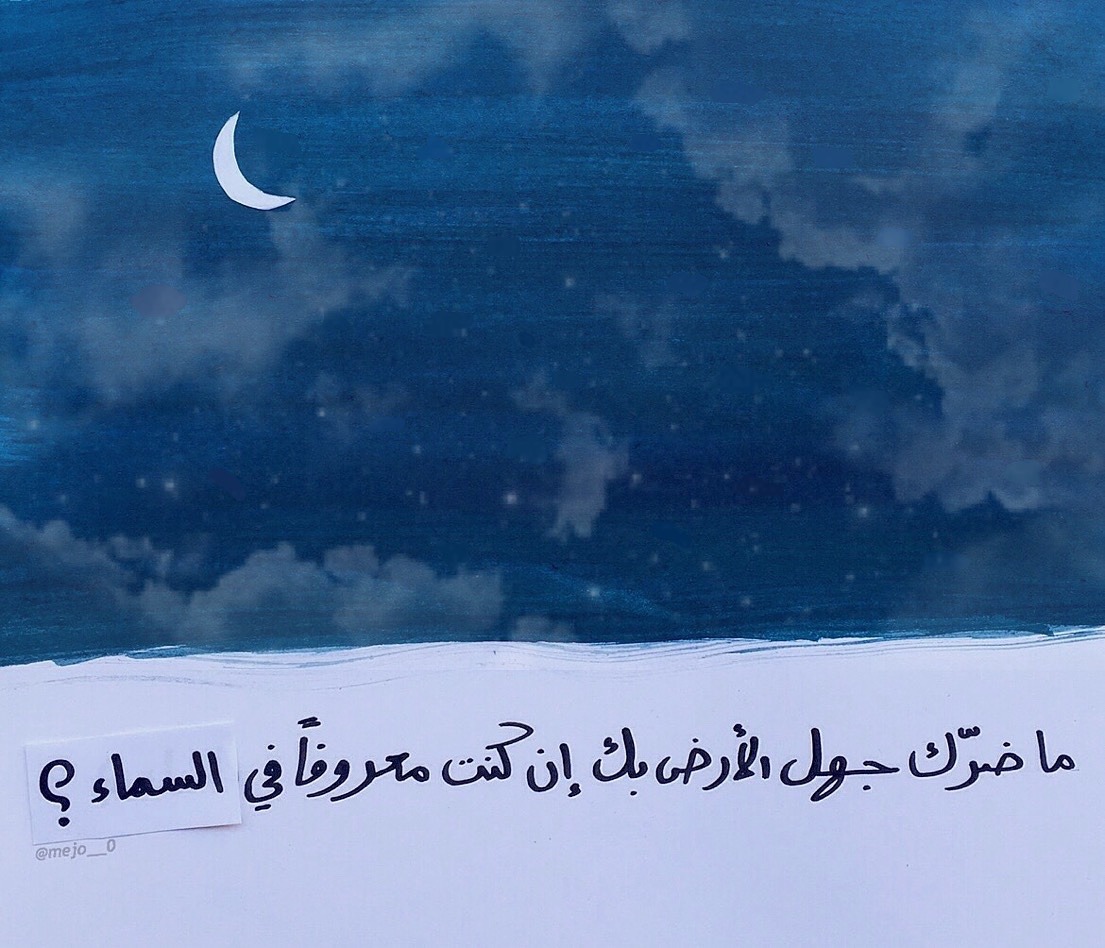 ما ضرّك جهل الأرض بك إن كنت معروفاً في السماء ؟
@mejo__0